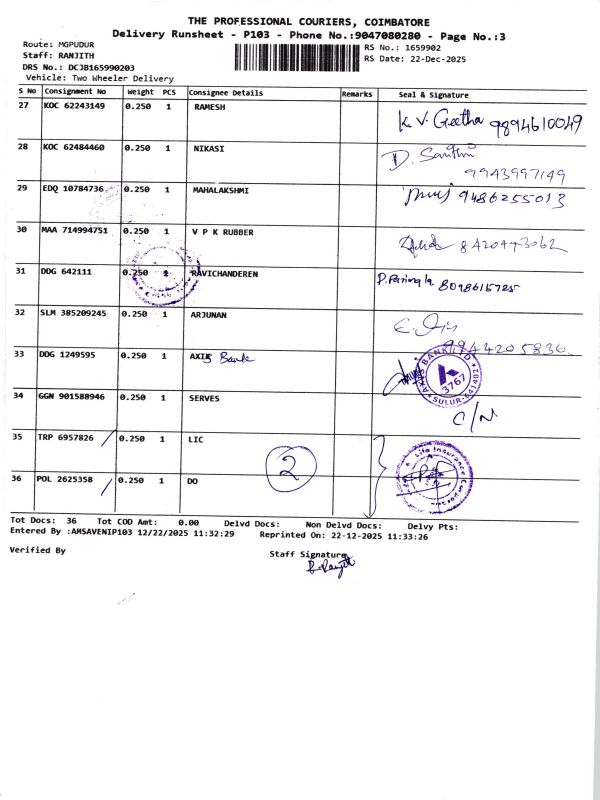 THE PROFESSIONAL COURIERS, COIMBATORE
Delivery Runsheet - P103 - Phone No.:9047080280 - Page No.:3
Route: MGPUDUR
RS No.: 1659902
Staff: RANJITH
RS Date: 22-Dec-2025
DRS No.: DCJB165990203
Vehicle: Two Wheeler Delivery
S No Consignment No Weight PCS Consignee Details Remarks Seal & Signature
27 KOC 62243149 0.250 1 RAMESH K. V. Geetha 9894610049
28 KOC 62484460 0.250 1 NIKASI D. 9943997149
29 EDQ 10784736 0.250 1 MAHALAKSHMI 9486255013
30 MAA 714994751 0.250 1 V P K RUBBER 8420473062
31 DDG 642111 0.250 1 RAVICHANDEREN 8098615725
32 SLM 385209245 0.250 1 ARJUNAN 9944205836
33 DDG 1249595 0.250 1 AXIS Bank AXIS BANK LTD 3767 SULUR-641402
34 GGN 901588946 0.250 1 SERVES C/N
35 TRP 6957826 0.250 1 LIC Life Insurance Corporation
2
36 POL 2625358 0.250 1 DO
Tot Docs: 36 Tot COD Amt: 0.00 Delvd Docs: Non Delvd Docs: Delvy Pts:
Entered By :AMSAVENIP103 12/22/2025 11:32:29 Reprinted On: 22-12-2025 11:33:26
Verified By
Staff Signature